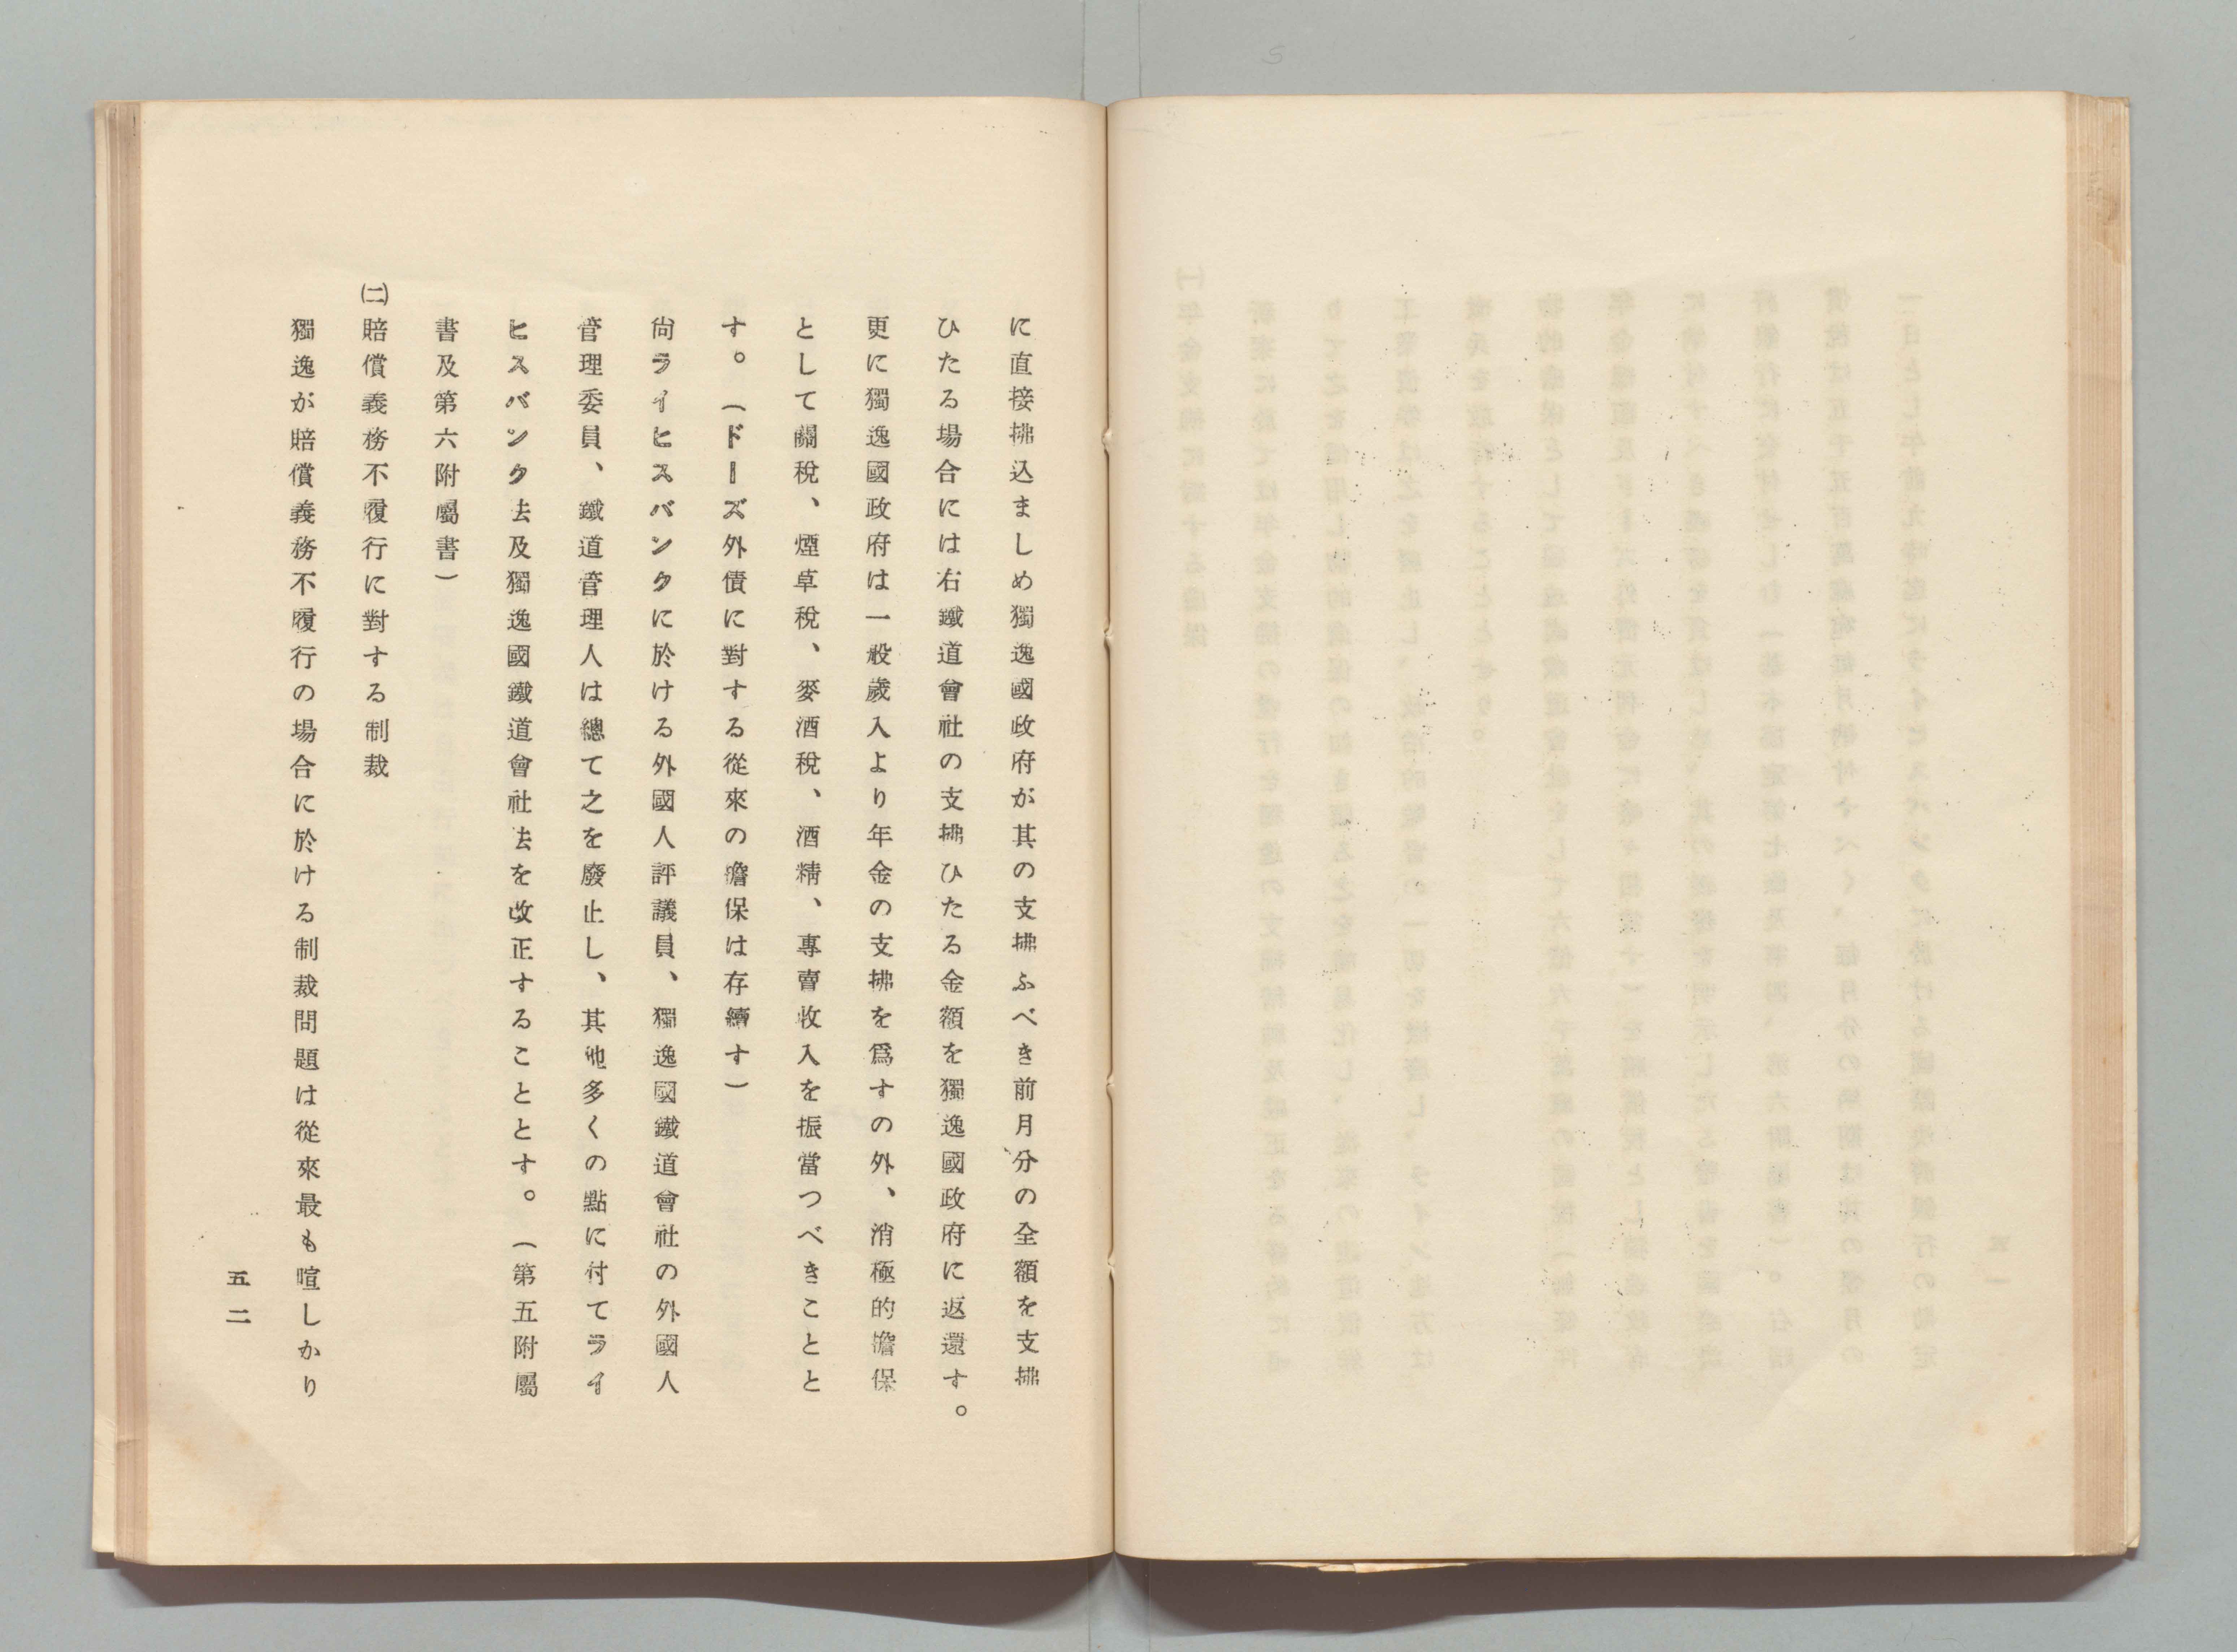 に直接拂込ましめ獨逸國政府が其の支拂ふべき前月分の全額を支拂
ひたる場合には右鐵道會社の支拂ひたる金額を獨逸國政府に返還す。
更に獨逸國政府は一般歲入より年金の支拂を爲すの外、消極的擔保
として關稅、煙草稅、麥酒稅、酒精、專賣收入を振當つべきことと
す。（ドーズ外債に對する從來の擔保は存續す）
尙ライヒスバンクに於ける外國人評議員、獨逸國鐵道會社の外國人
管理委員、鐵道管理人は總て之を廢止し、其他多くの點に付てライ
ヒスバンク法及獨逸國鐵道會社法を改正することとす。（第五附屬
書及第六附屬書）
㈡賠償義務不履行に對する制裁
獨逸が賠償義務不履行の場合に於ける制裁問題は從來最も喧しかり
五二